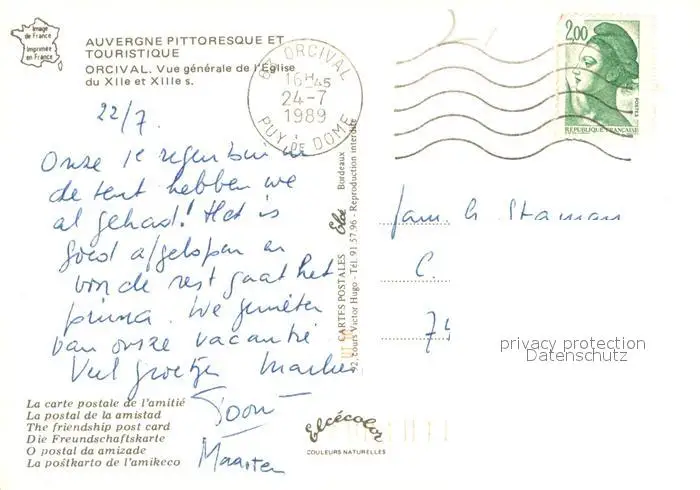 Image
de France
Imprimée
en France
AUVERGNE PITTORESQUE ET
TOURISTIQUE
ORCIVAL. Vue générale de l'Eglise
du XIIe et XIIIe s.
63 ORCIVAL
16H45
24-7
1989
PUY DE DOME
2,00
POSTES
REPUBLIQUE FRANÇAISE
22/7.
Onze 1e regenbui in
de tent hebben we
al gehad! Het is
goed afgelopen en
van de rest gaat het
prima. We genieten
van onze vacantie
Veel groetjes Marlies
Toon
Maarten
Fam. G. Staman
C.
74
CARTES POSTALES Elcé Bordeaux
92, cours Victor Hugo - Tél. 91.57.96 - Reproduction interdite
La carte postale de l'amitié
La postal de la amistad
The friendship post card
Die Freundschaftskarte
O postal da amizade
La poŝtkarto de l'amikeco
Elcécolor
COULEURS NATURELLES
privacy protection
Datenschutz